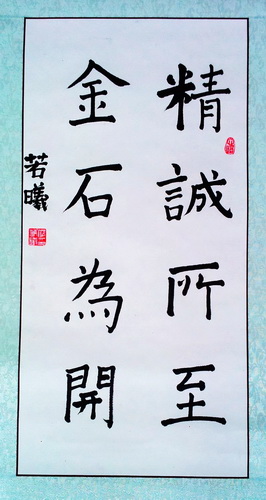 精誠所至
金石為開
若曦